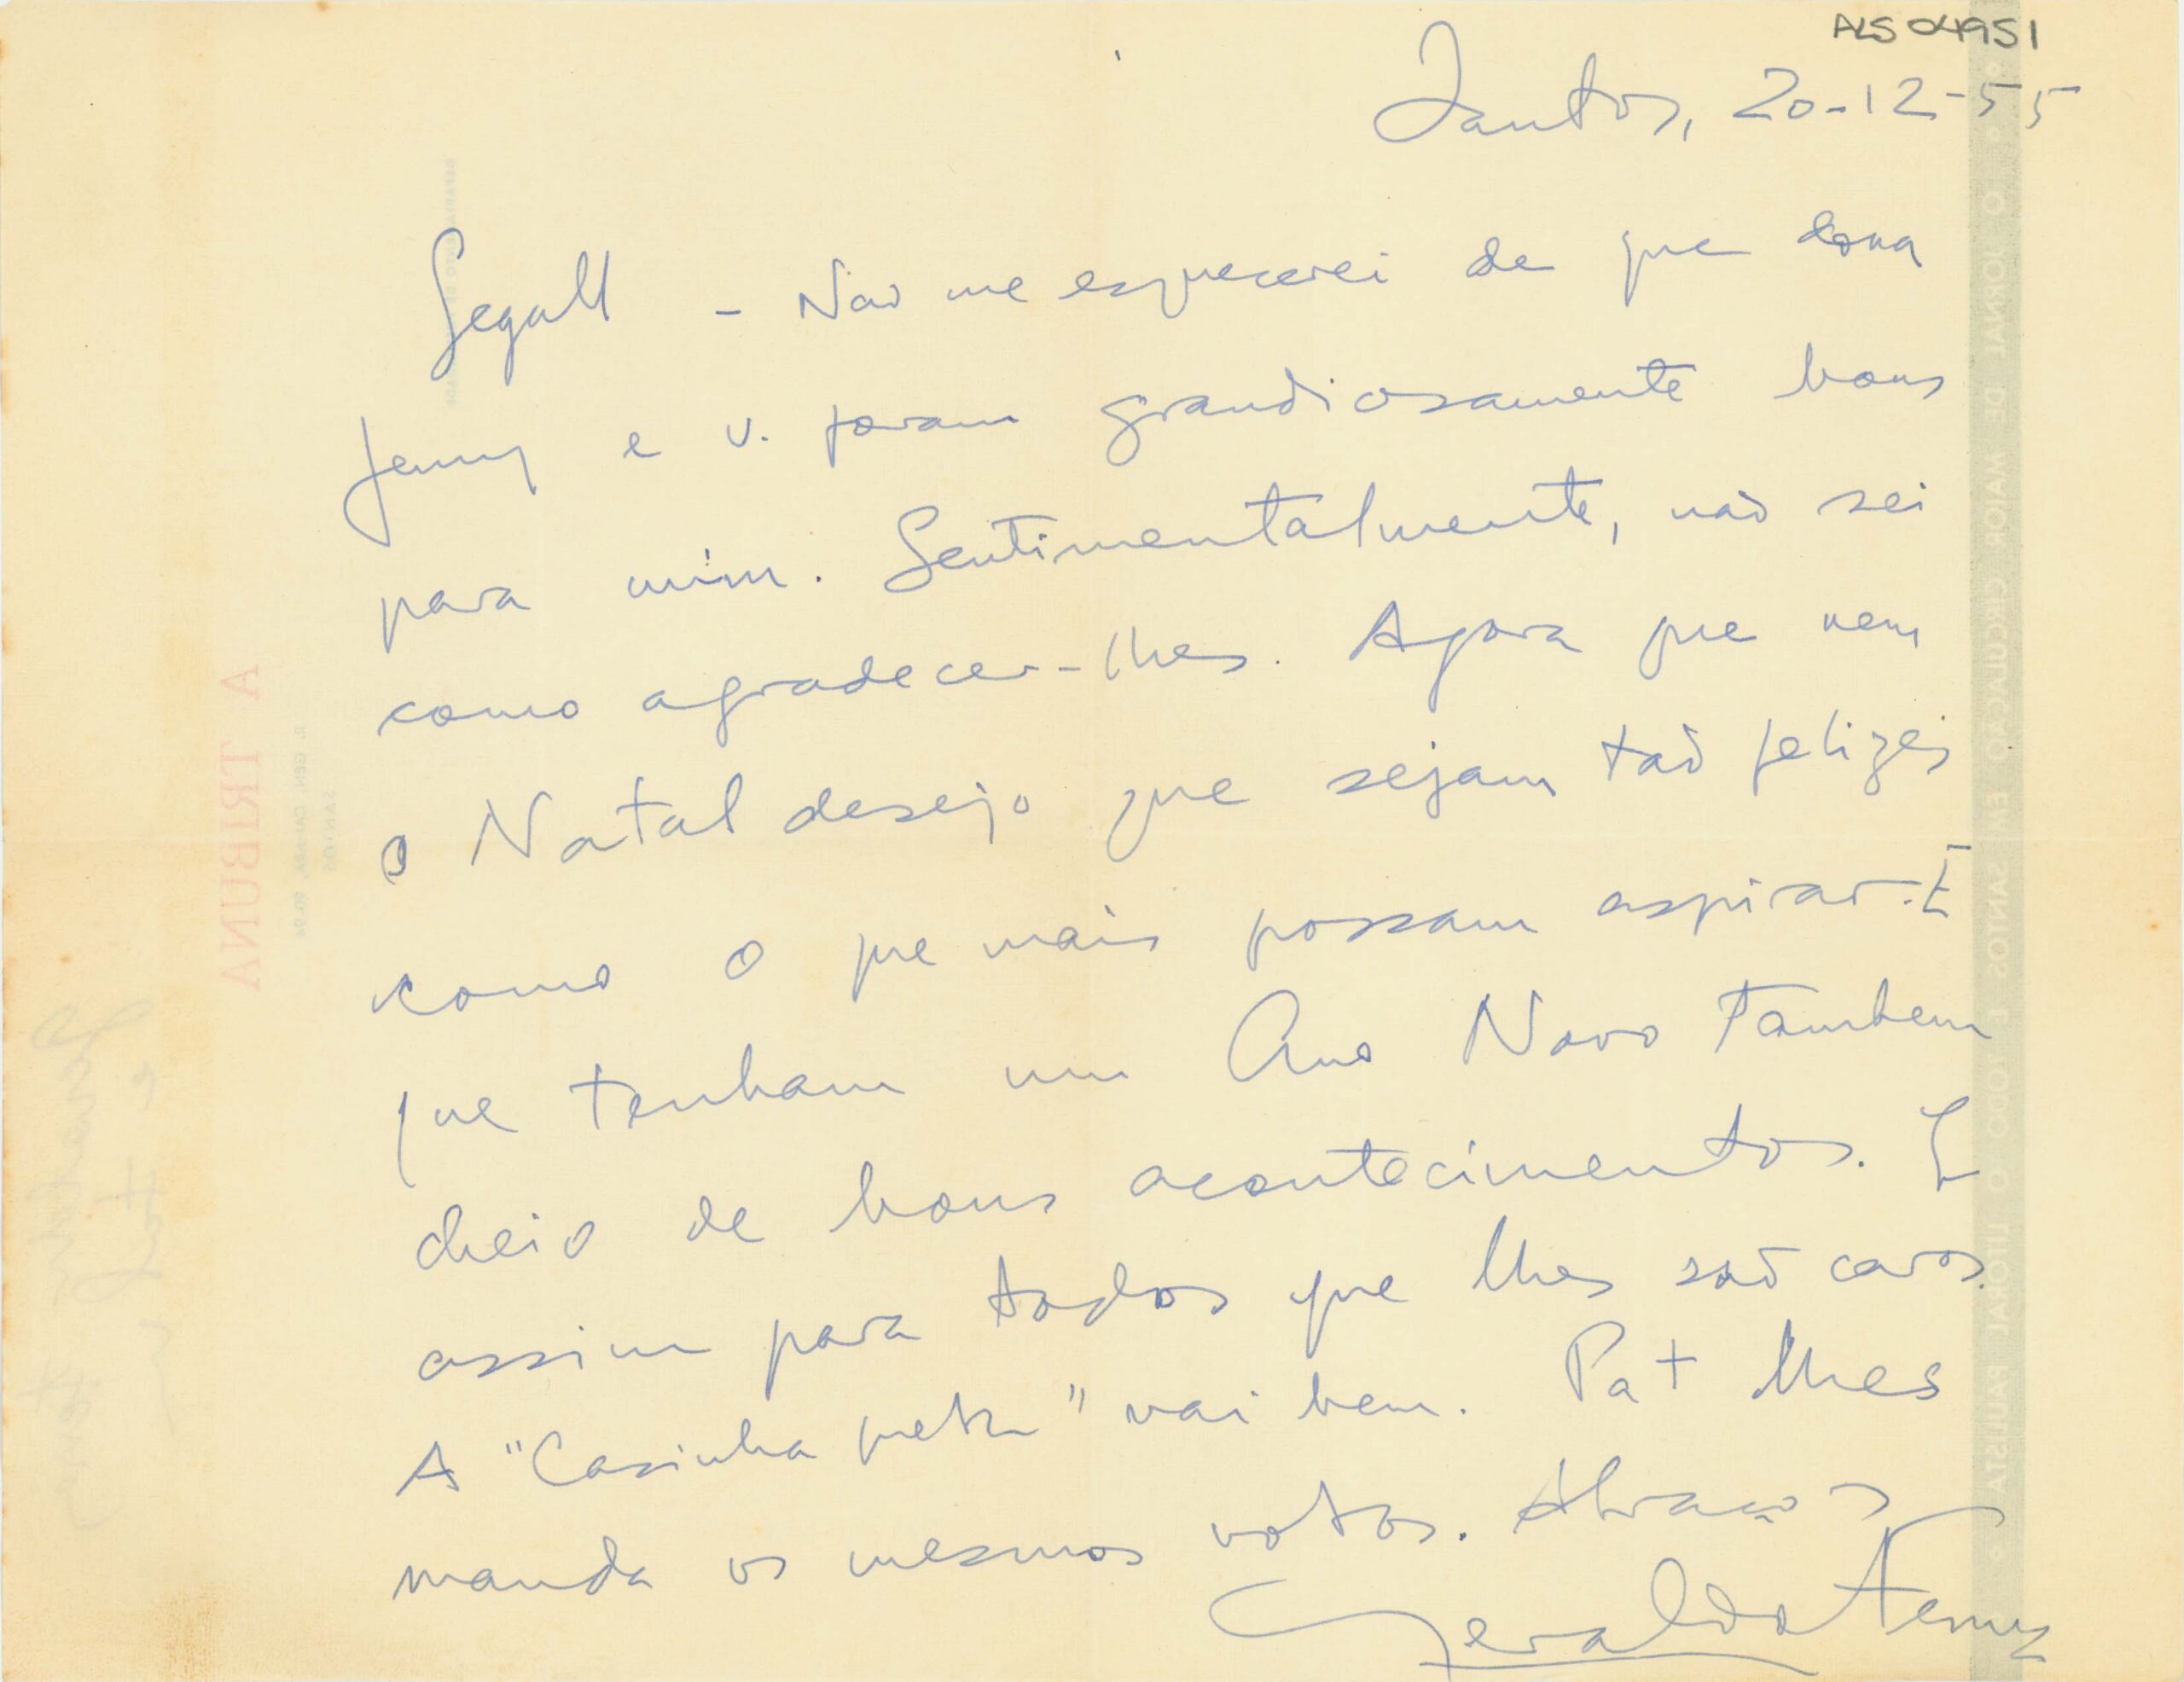 ALS 04951
Santos, 20-12-55
Segall - Não me esquecerei de que dona
Jenny e v. foram grandiosamente bons
para mim. Sentimentalmente, não sei
como agradecer-lhes. Agora que vem
o Natal desejo que sejam tão felizes
como o que mais possam aspirar. E
que tenham um Ano Novo tambem
cheio de bons acontecimentos. E
assim para todos que lhes são caros.
A "Casinha preta" vai bem. Pat lhes
manda os mesmos votos. Abraços
Geraldo Ferraz
A TRIBUNA
R. GEN. CAMARA, 90-94
SANTOS
O JORNAL DE MAIOR CIRCULAÇÃO EM SANTOS E TODO O LITORAL PAULISTA